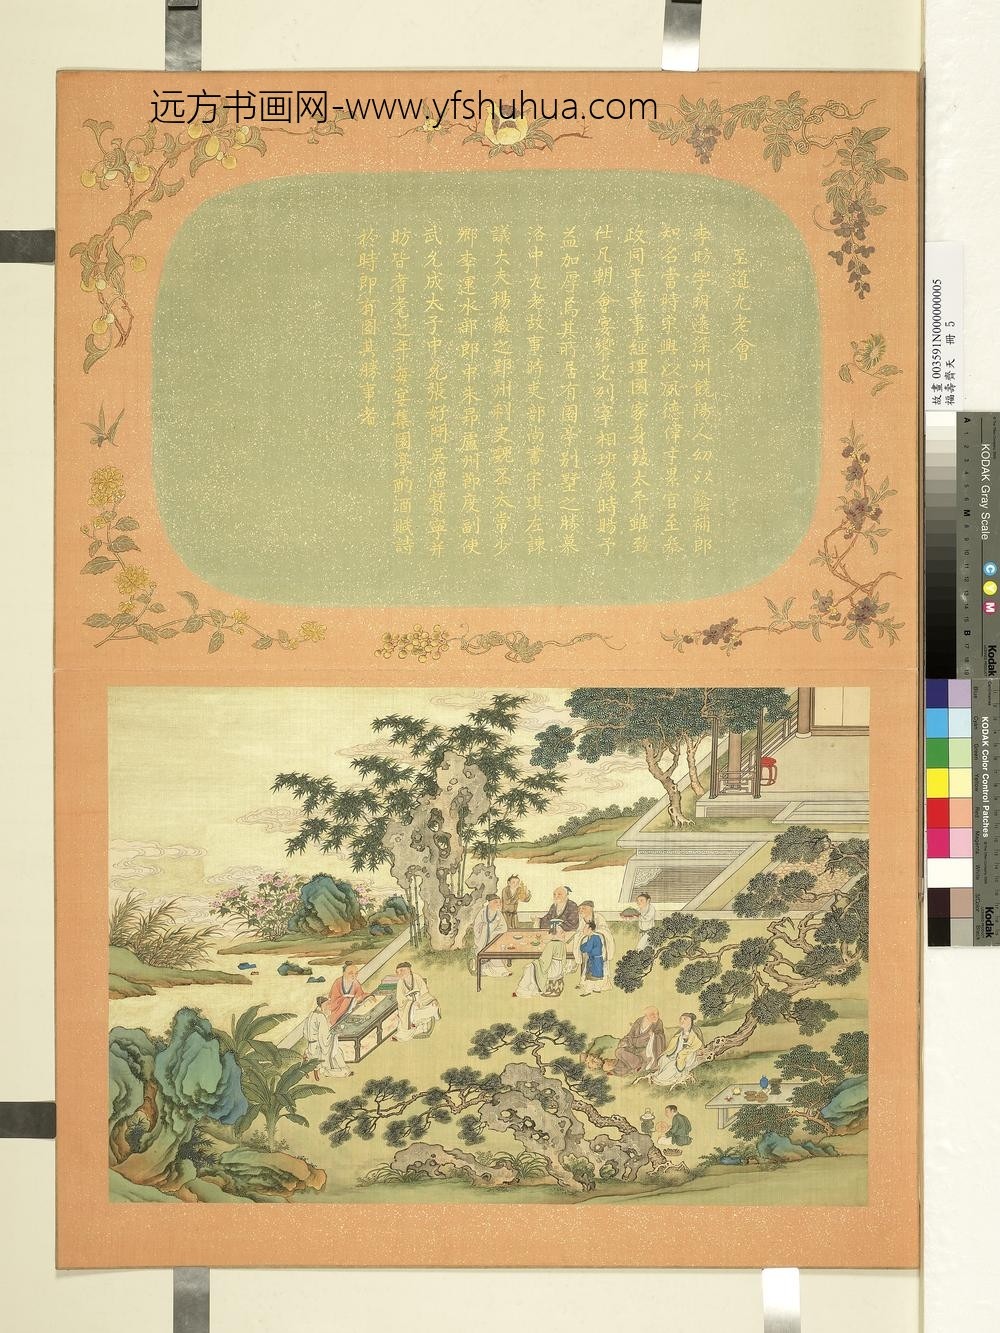 远方书画网-www.yfshuhua.com
至道九老會
李昉字明遠深州饒陽人幼以蔭補郎
知名當時宋興
政同平章事經理國家身致太平雖致
仕凡朝會宴饗令列宰相班歲時賜予
益加厚焉其所居有園亭別墅之勝慕
洛中九老故事時吏部尚書宋琪左諫
議大夫楊徽之郢州刺史魏丕太常少
卿李運水部郎中朱昂廬州節度副使
武允成太子中允張好問吳僧贊寧并
昉皆耆耄之年
宴集園亭酌酒賦詩
於時即有圖其勝事者
故畫 003591N000000005
福壽齊天 冊 5
KODAK Gray Scale
C Y M
Kodak
A 1 2 3 4 5 6 M 8 9 10 11 12 13 14 15 B 17 18 19
KODAK Color Control Patches
Blue Cyan Green Yellow Red Magenta White 3/Color Black
Kodak